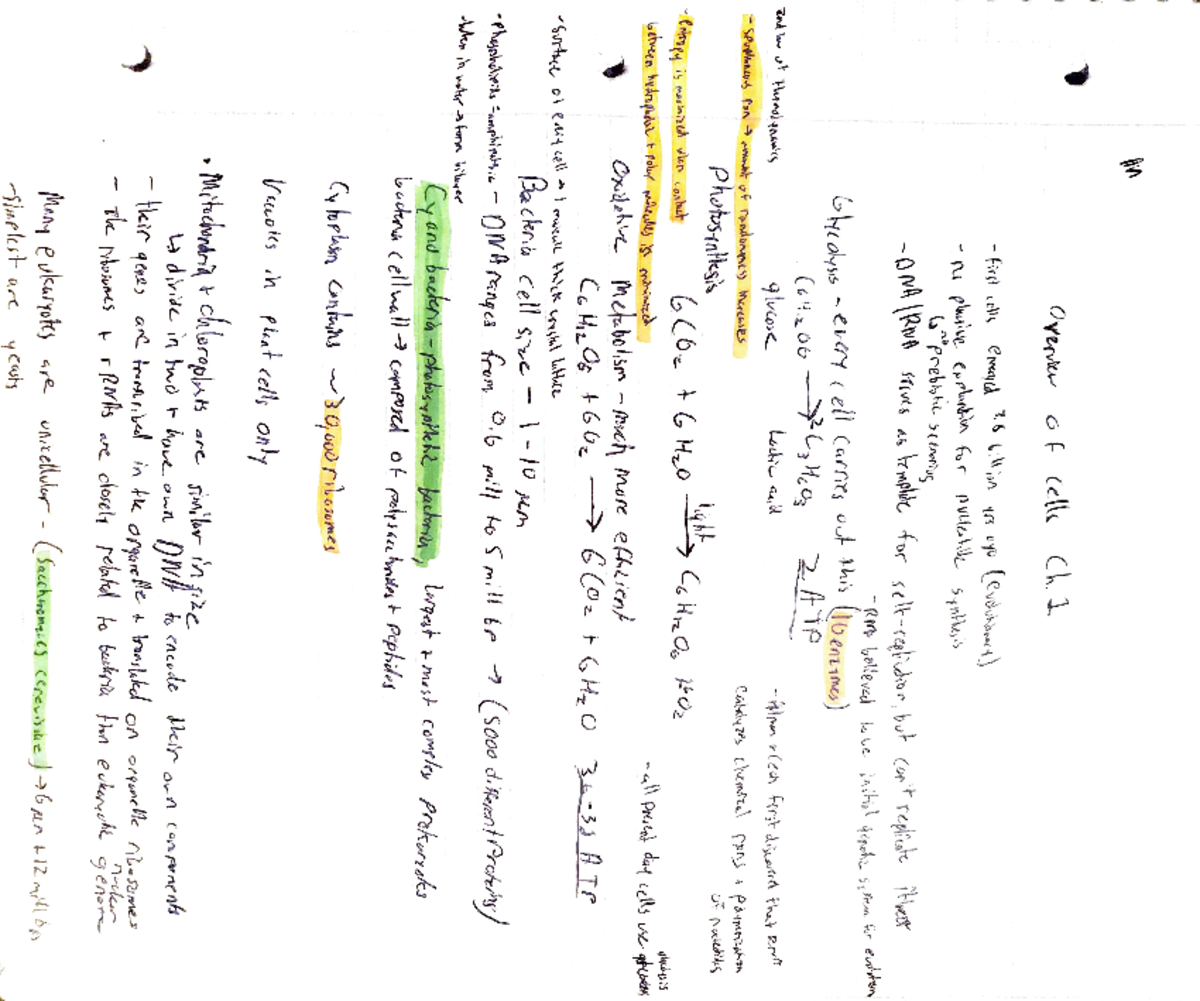 Overview of Cells Ch. 1
- First cells emerged 3.8 billion yrs ago (evolutionary)
- no plausible explanation for nucleotide synthesis
↳ prebiotic scenarios
- DNA/RNA serves as template for self-replication, but can't replicate itself
- RNA believed to be initial genetic system for evolution
Glycolysis - every cell carries out this (10 enzymes)
C6H12O6 → 2 C3H6O3 2 ATP
glucose lactic acid
first discovered that
catalyzes chemical rxns + polymerization
of nucleotides
2nd law of thermodynamics
- spontaneous rxn → amount of randomness increases
Photosynthesis
6CO2 + 6H2O light → C6H12O6 + 6O2
- entropy is maximized when contact
between hydrophobic + polar molecules is minimized
- all present day cells use
glycolysis
Oxidative Metabolism - much more efficient
C6H12O6 + 6O2 → 6CO2 + 6H2O 36-38 ATP
- surface of every cell →
Bacteria cell size - 1-10 µm
- phospholipids = amphipathic
- DNA ranges from 0.6 mill to 5 mill bp → (5000 different proteins)
- when in water → form bilayer
Cyanobacteria - photosynthetic bacteria, largest + most complex prokaryotes
bacteria cell wall → composed of polysaccharides + peptides
Cytoplasm contains ~ 30,000 ribosomes
Vacuoles in plant cells only
• Mitochondria + chloroplasts are similar in size
↳ divide in two + have own DNA to encode their own components
- their genes are transcribed in the organelle + translated on organelle ribosomes
- The ribosomes + rRNAs are closely related to bacteria than eukaryotic nuclear genome
Many eukaryotes are unicellular - (Saccharomyces cerevisiae) → 6 µm + 12 mill bp
- simplest are yeasts